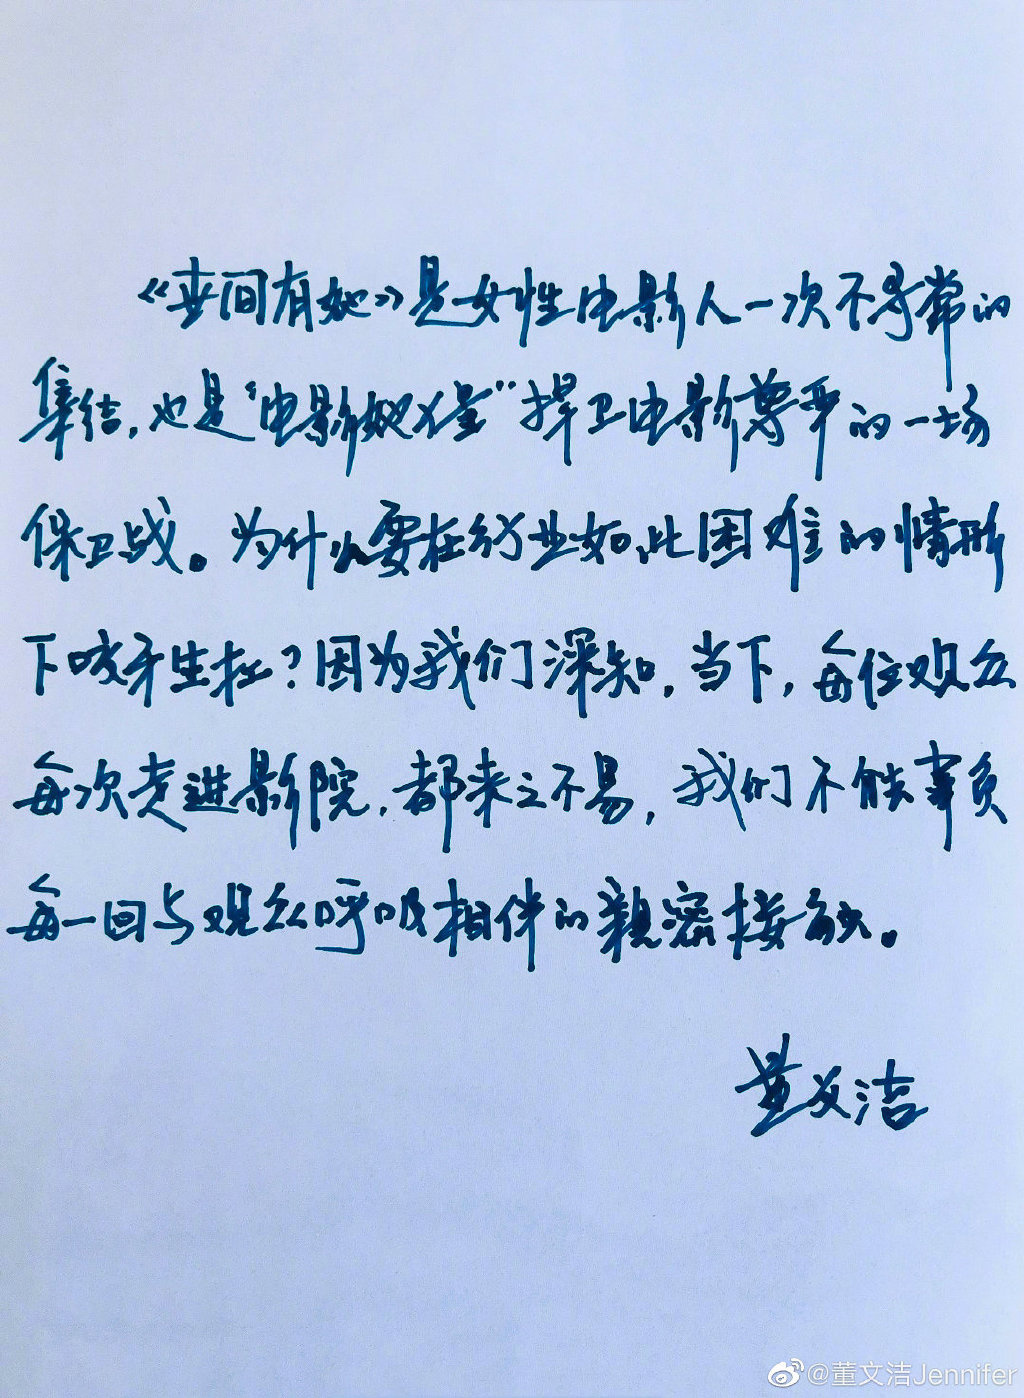 《世间有她》是女性电影人一次不寻常的
集结,也是“电影奴隶”捍卫电影尊严的一场
保卫战。为什么要在行业如此困难的情形
下咬牙生扛?因为我们深知,当下,每位观众
每次走进影院,都来之不易,我们不能辜负
每一回与观众呼吸相伴的亲密接触。
董文洁
@董文洁Jennifer